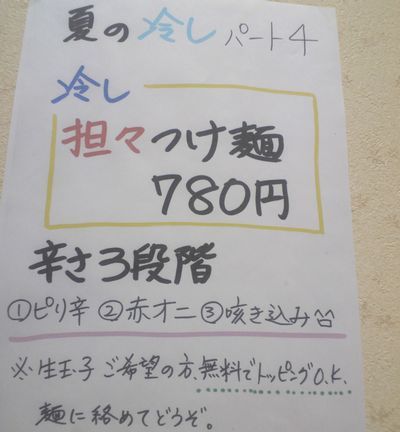 夏の冷しパート4
冷し
担々つけ麺
780円
辛さ3段階
①ピリ辛②赤オニ③咳き込み
※生玉子ご希望の方、無料でトッピングO.K.
麺に絡めてどうぞ。